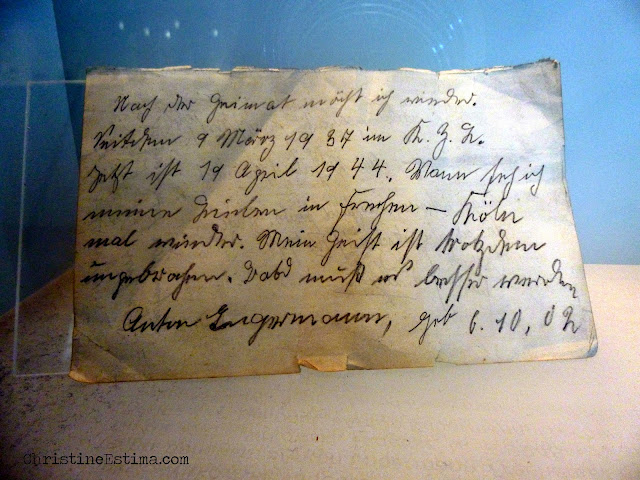 Nach der Heimat möcht ich wieder.
Seitdem 9 März 1937 im K. Z. L.
Jetzt ist 19 April 1944. Wann seh ich
meine Lieben in Frechen – Köln
mal wieder. Mein Geist ist trotzdem
ungebrochen. Bald muß es besser werden
Anton Engermann, geb 6. 10, 02
ChristineEstima.com